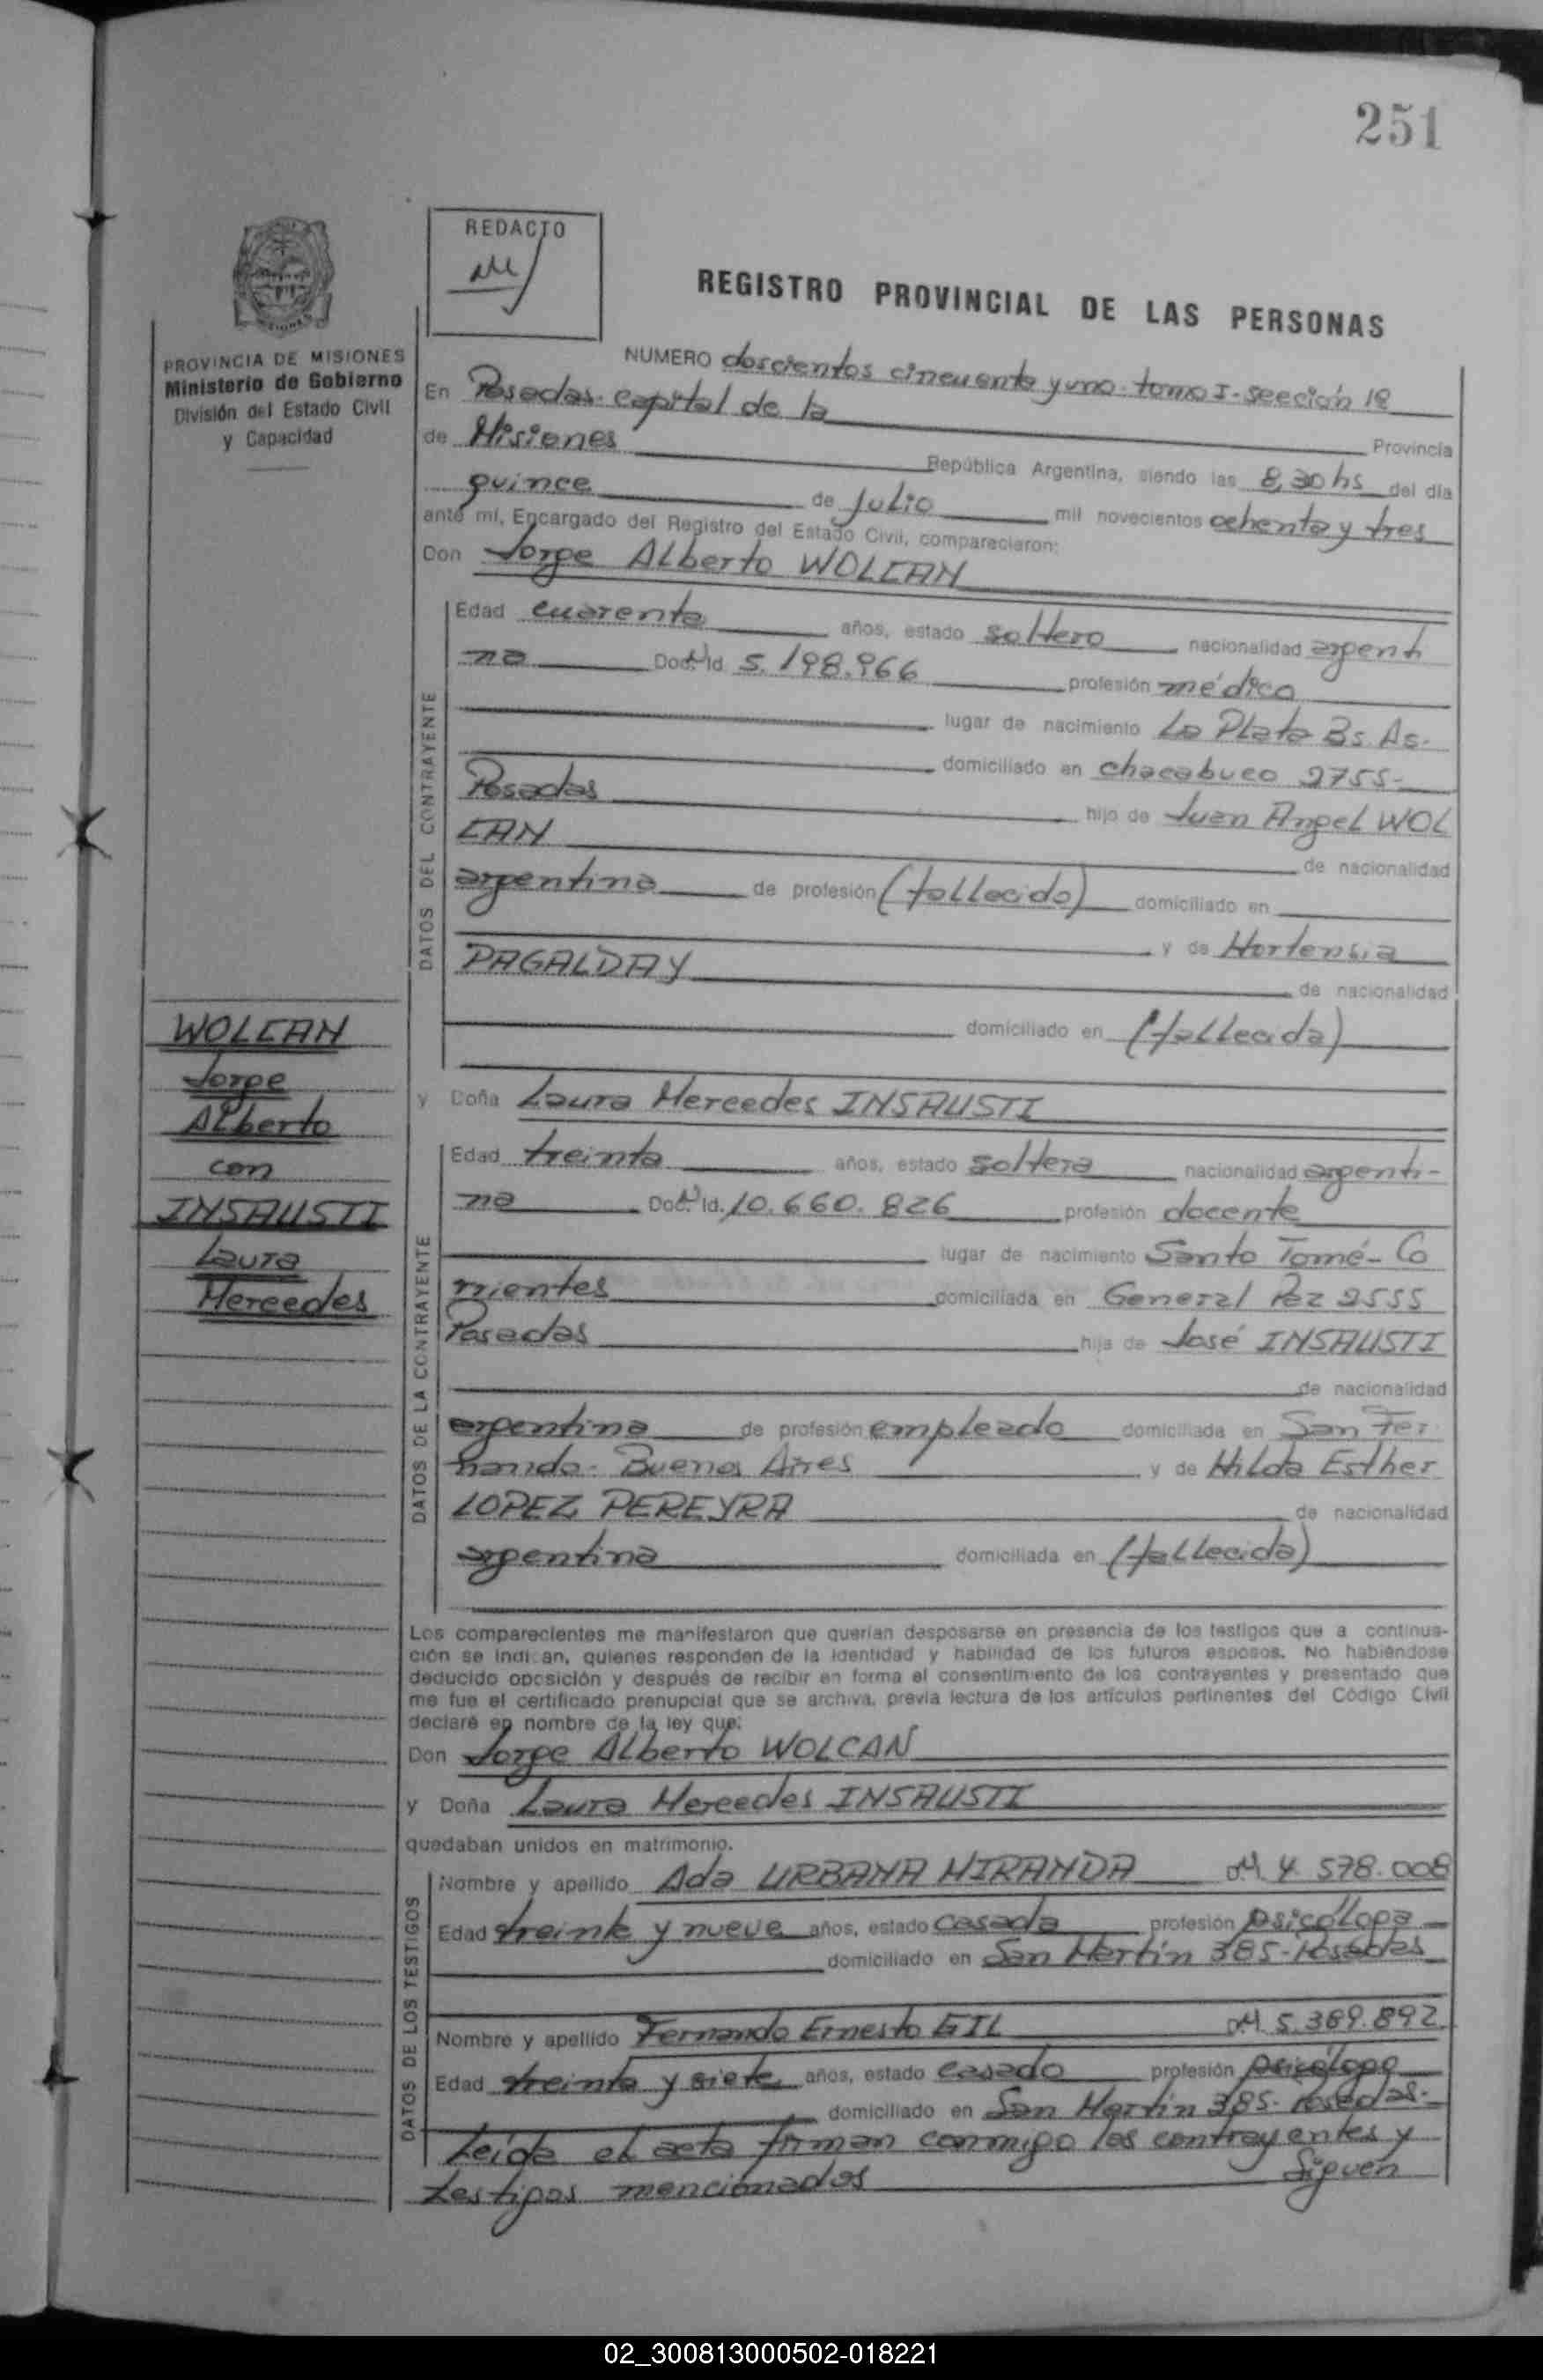 251
REDACTO
REGISTRO PROVINCIAL DE LAS PERSONAS
PROVINCIA DE MISIONES
Ministerio de Gobierno
División del Estado Civil
y Capacidad
NUMERO doscientos cincuenta y uno - tomo I - sección 1ª
En Posadas - capital de la Provincia
de Misiones República Argentina, siendo las 8,30 hs del día
quince de Julio mil novecientos ochenta y tres
ante mí, Encargado del Registro del Estado Civil, comparecieron:
Don Jorge Alberto WOLCAN
DATOS DEL CONTRAYENTE
Edad cuarenta años, estado soltero nacionalidad argenti
na Doc. Id. 5.198.966 profesión médico
lugar de nacimiento La Plata Bs. As.
domiciliado en chacabuco 2755-
Posadas hijo de Juan Angel WOL
CAN de nacionalidad
argentina de profesión (fallecido) domiciliado en
y de Hortensia
PAGALDAY de nacionalidad
domiciliado en (fallecida)
WOLCAN
Jorge
Alberto
con
INSAUSTI
Laura
Mercedes
y Doña Laura Mercedes INSAUSTI
DATOS DE LA CONTRAYENTE
Edad treinta años, estado soltera nacionalidad argenti-
na Doc. Id. 10.660.826 profesión docente
lugar de nacimiento Santo Tomé - Co
rrientes domiciliada en General Paz 2555
Posadas hija de José INSAUSTI
de nacionalidad
argentina de profesión empleado domiciliada en San Fer
nando - Buenos Aires y de Hilda Esther
LOPEZ PEREYRA de nacionalidad
argentina domiciliada en (fallecida)
Los comparecientes me manifestaron que querían desposarse en presencia de los testigos que a continua-
ción se indican, quienes responden de la identidad y habilidad de los futuros esposos. No habiéndose
deducido oposición y después de recibir en forma el consentimiento de los contrayentes y presentado que
me fue el certificado prenupcial que se archiva, previa lectura de los artículos pertinentes del Código Civil
declaré en nombre de la ley que:
Don Jorge Alberto WOLCAN
y Doña Laura Mercedes INSAUSTI
quedaban unidos en matrimonio.
DATOS DE LOS TESTIGOS
Nombre y apellido Ada URBANA MIRANDA 4.578.008
Edad treinta y nueve años, estado casada profesión psicóloga
domiciliado en San Martín 385 - Posadas
Nombre y apellido Fernando Ernesto GIL 5.389.892
Edad treinta y siete años, estado casado profesión psicólogo
domiciliado en San Martín 385 - Posadas -
Leída el acta firman conmigo los contrayentes y
testigos mencionados Siguen
02_300813000502-018221